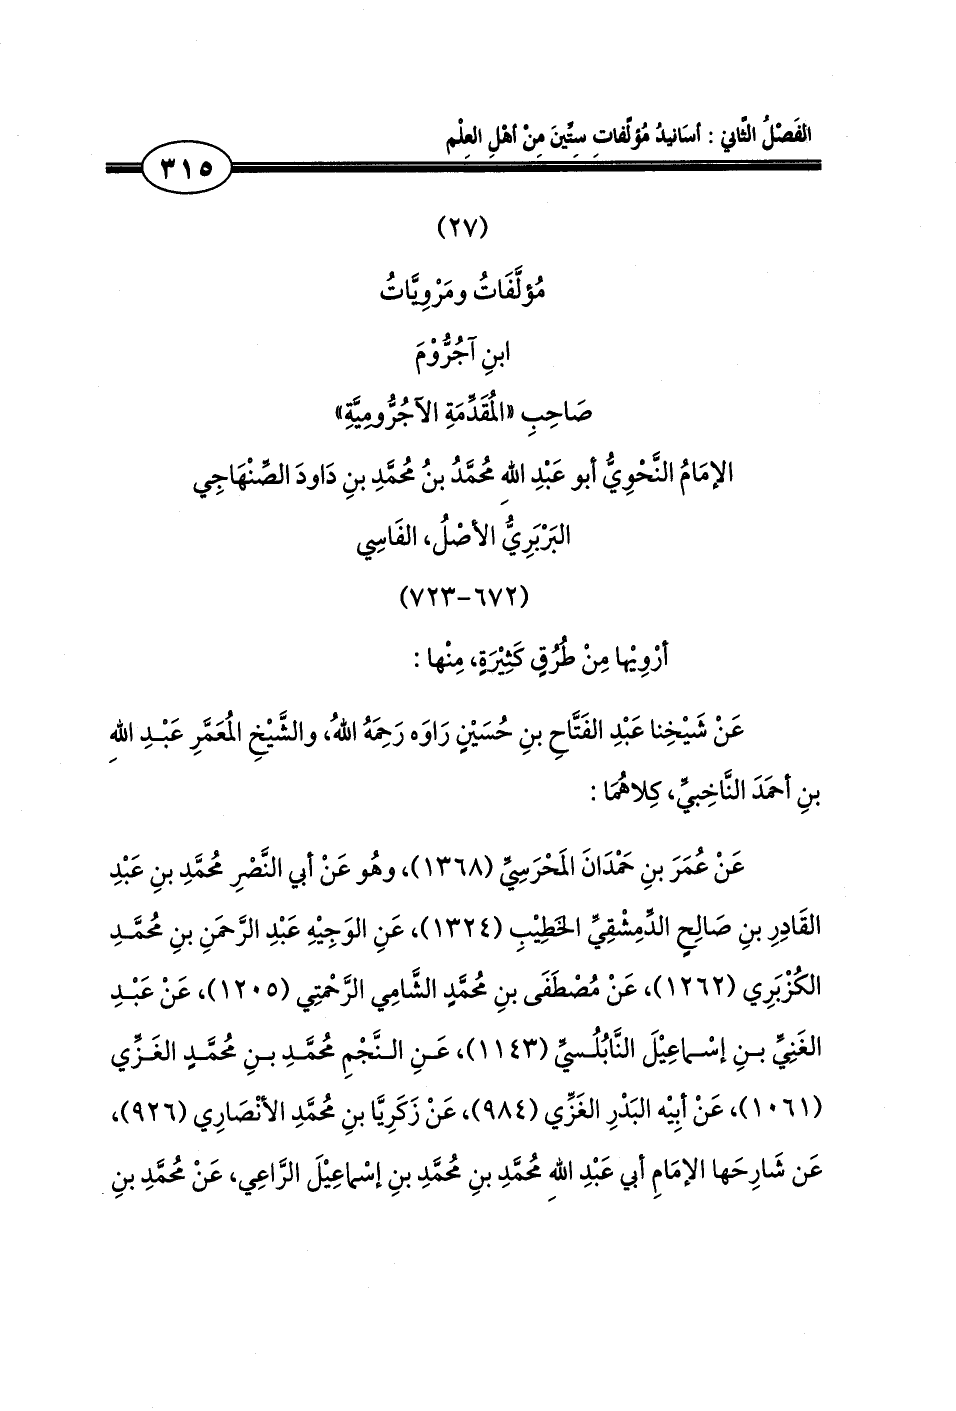 الفَصْلُ الثَّاني : أسَانيدُ مُؤلَّفاتِ سِتِّينَ مِنْ أهْلِ العِلْمِ
٣١٥
(٢٧)
مُؤلَّفَاتُ ومَرْوِيَّاتُ
ابنِ آجُرُّوْمَ
صَاحِبِ «المُقَدِّمَةِ الآجُرُّومِيَّةِ»
الإمَامُ النَّحْوِيُّ أبو عَبْدِ اللهِ مُحمَّدُ بنُ مُحمَّدِ بنِ دَاودَ الصِّنْهَاجِي
البَرْبَرِيُّ الأصْلُ، الفَاسِي
(٦٧٢-٧٢٣)
أرْوِيْها مِنْ طُرُقٍ كَثِيْرَةٍ، مِنْها :
عَنْ شَيْخِنا عَبْدِ الفَتَّاحِ بنِ حُسَيْنٍ رَاوَه رَحِمَهُ اللهُ، والشَّيْخِ المُعَمَّرِ عَبْدِ اللهِ
بنِ أحمَدَ النَّاخِبيِّ، كِلاهُمَا :
عَنْ عُمَرَ بنِ حَمْدَانَ المَحْرَسِيِّ (١٣٦٨)، وهُو عَنْ أبي النَّصْرِ مُحمَّدِ بنِ عَبْدِ
القَادِرِ بنِ صَالِحٍ الدِّمِشْقِيِّ الخَطِيْبِ (١٣٢٤)، عَنِ الوَجِيْهِ عَبْدِ الرَّحمَنِ بنِ مُحمَّدٍ
الكُزْبَرِي (١٢٦٢)، عَنْ مُصْطَفَى بنِ مُحمَّدٍ الشَّامِي الرَّحْمَتِي (١٢٠٥)، عَنْ عَبْدِ
الغَنِيِّ بنِ إسْماعِيْلَ النَّابُلْسيِّ (١١٤٣)، عَنِ النَّجْمِ مُحمَّدِ بنِ مُحمَّدٍ الغَزِّي
(١٠٦١)، عَنْ أبِيْه البَدْرِ الغَزِّي (٩٨٤)، عَنْ زَكَرِيَّا بنِ مُحمَّدِ الأنْصَارِي (٩٢٦)،
عَن شَارِحَها الإمَامِ أبي عَبْدِ اللهِ مُحمَّدِ بنِ مُحمَّدِ بنِ إسْماعِيْلَ الرَّاعِي، عَنْ مُحمَّدِ بنِ